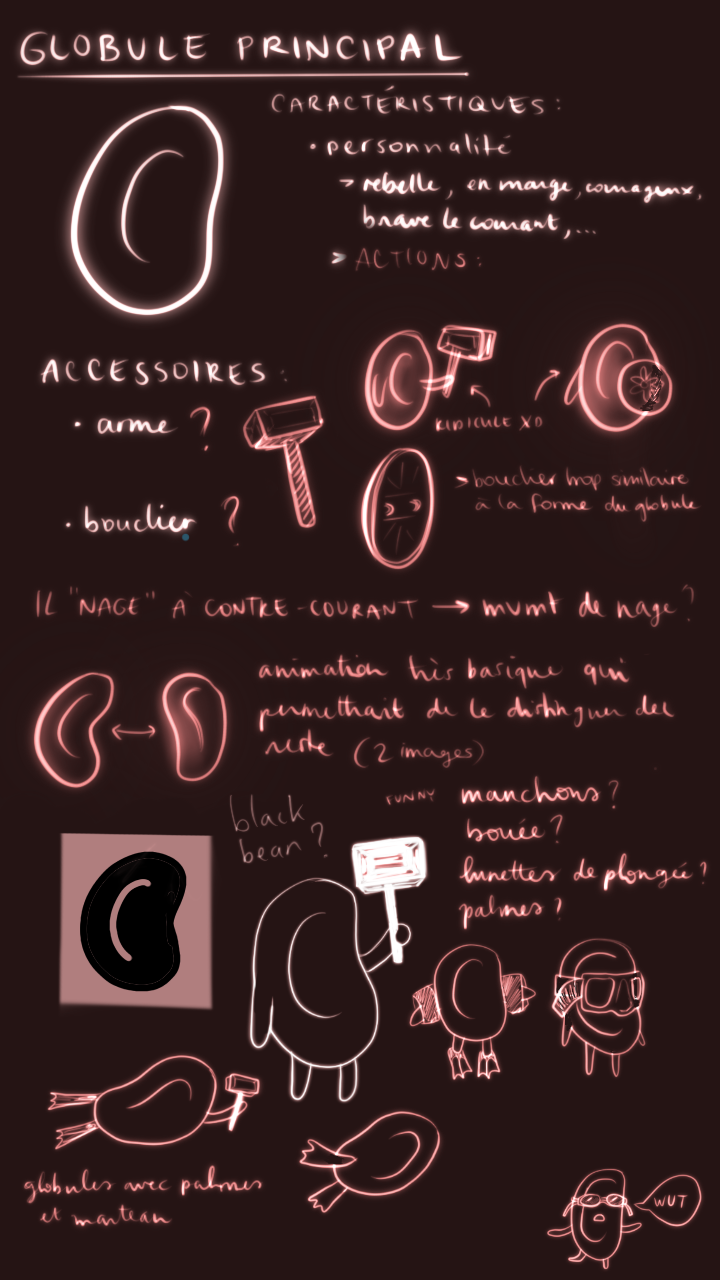 GLOBULE PRINCIPAL
CARACTÉRISTIQUES :
• personnalité
> rebelle, en marge, courageux,
brave le courant,...
> ACTIONS :
ACCESSOIRES :
• arme ?
RIDICULE XD
• bouclier ?
> bouclier trop similaire
à la forme du globule
IL "NAGE" À CONTRE-COURANT → mvmt de nage ?
animation très basique qui
permettrait de le distinguer des
reste (2 images)
black
bean ?
FUNNY
manchons ?
bouée ?
lunettes de plongée ?
palmes ?
globules avec palmes
et marteau
WUT